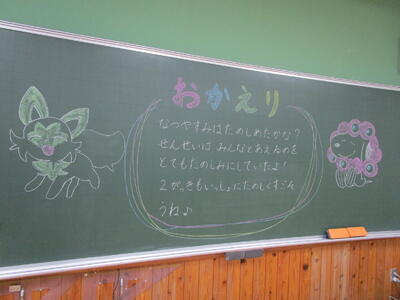 おかえり
なつやすみはたのしめたかな?
せんせいはみんなとあえるのを
とてもたのしみにしていたよ!
2がっきもいっしょにたのしくすごそ
うね♪